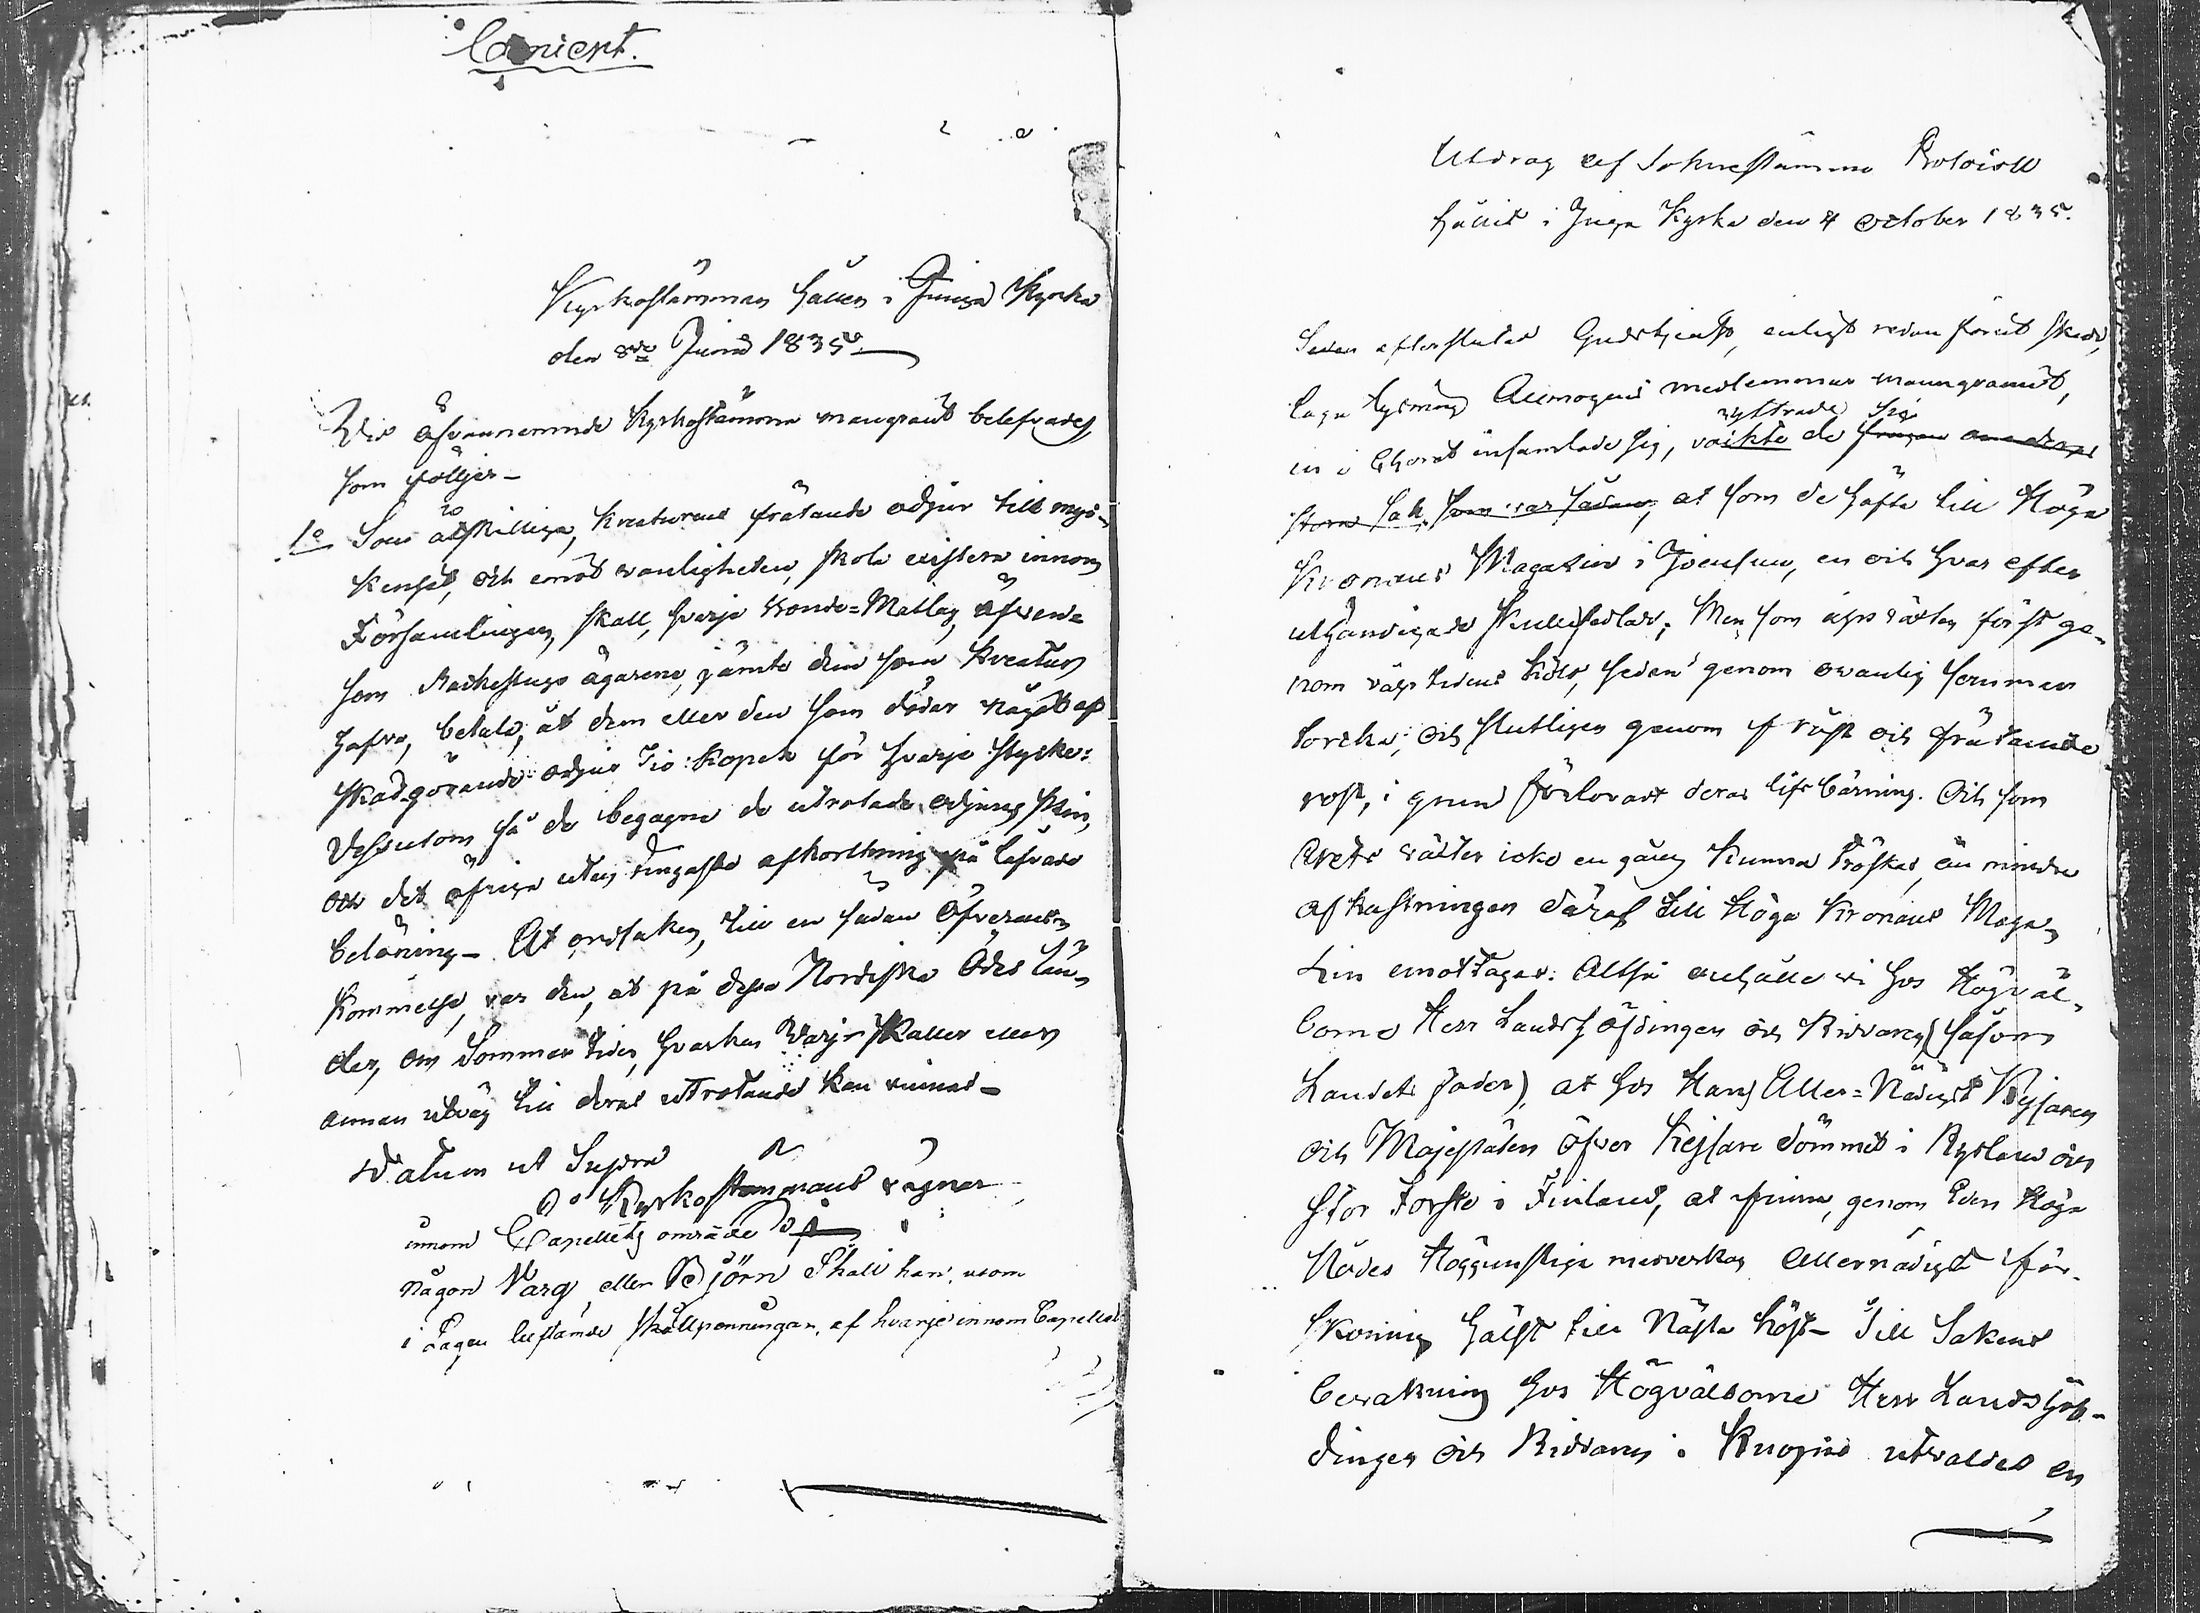 Concept.
Kyrkostämman hållen i Juuga Kyrka
den 8de Junii 1835.
Wid ofvannemnde Kyrkostämma mangrant belefvades,
som följer –
1o Som åtskilliga, kreaturens frätande odjur till myc-
kenhet, och emot vanligheten, skola existera innom
Församlingen, skall, hvarje Bonde-Matlag, äfven-
som Backestugo ägarene, jämte dem som kreatur
hafva, betala, åt dem eller den som dödar något af
skadgörande odjur Tio Kopek för hvarje stycke:
dessutom få de begagna de utrotade odjurens skin,
och det öfriga utan ringaste afkortning på lofvade
belöning – At orsaken, till en sådan Öfverens-
kommelse, var den, at på dessa Nordiska Ödes län-
der, om Sommar tiden, hvarken Varg-skaller eller
annan utväg till deras utrotande kan vinnas –
Datum ut Supra
På Kyrkostämmans vägnar
innom Capellets område
någon Varg eller Björn Skall han, utom
i Lagen bestämde skallpenningar, af hvarje innom Capellet
Utdrag af Sokne stämmo Protocoll
hållit i Juga Kyrka den 4 October 1835.
Sedan efter slutad Gudstjenst, enligt redan förut skedd,
laga lysning Allmogens medlemmar manngrannt,
yttrade sig
in i Choret insamlade sig, väckte de frågan om deras
stora sak, som var sådan, at som de häfta till Höga
Kronans Magazin i Joensuu, en och hvar efter
uthändigade Skuldsedlar; Men som åhrsväxten först ge-
nom våhrtidens köld, sedan genom ovanlig sommar
torcka, och slutligen genom frost och frätande
rost, i grund förlorat deras lifs bärning. Och som
Årets växter icke en gång kunna Tröskas, än mindre
afkastningen däraf till Höga Kronans Maga-
zin emottages: Altså anhålle vi hos Högväl-
borne Herr Landshöfdingen och Riddaren (såsom
Landets fader), at hos Hans Aller-Nådigste Kejsaren
och Majestäten öfver Kejsare dömmet i Ryssland och
Stor Förste i Finland, at finna, genom Eders Höga
Nådes Höggunstiga medverkan Allernådigst för-
skoning hälst till Nästa höst – Till Sakens
bevakning hos Högvälborne Herr Landshöf-
dingen och Riddaren i Kuopio utvaldes en